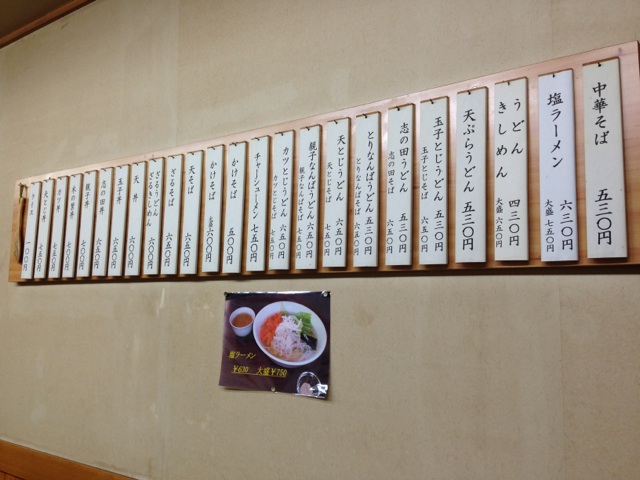 中華そば 五三〇円
塩ラーメン 六三〇円
大盛 七五〇円
うどん
きしめん 四三〇円
大盛 六五〇円
天ぷらうどん 五三〇円
玉子とじうどん 五三〇円
玉子とじそば 六五〇円
志の田うどん 五三〇円
志の田そば 六五〇円
とりなんばうどん 五三〇円
とりなんばそば 六五〇円
天とじうどん 六五〇円
天とじそば 七五〇円
親子なんばうどん 六五〇円
親子なんばそば 七五〇円
カツとじうどん 六五〇円
カツとじそば 七五〇円
チャーシューメン 七五〇円
かけそば 五〇〇円
かけそば
大盛 六〇〇円
天そば 六五〇円
ざるそば 六五〇円
ざるうどん
ざるきしめん 六五〇円
天丼 六五〇円
玉子丼 六五〇円
志の田丼 六五〇円
親子丼 七五〇円
木の葉丼 七五〇円
カツ丼 七五〇円
天とじ丼 七五〇円
ライス 一八〇円
塩ラーメン
¥630 大盛¥750